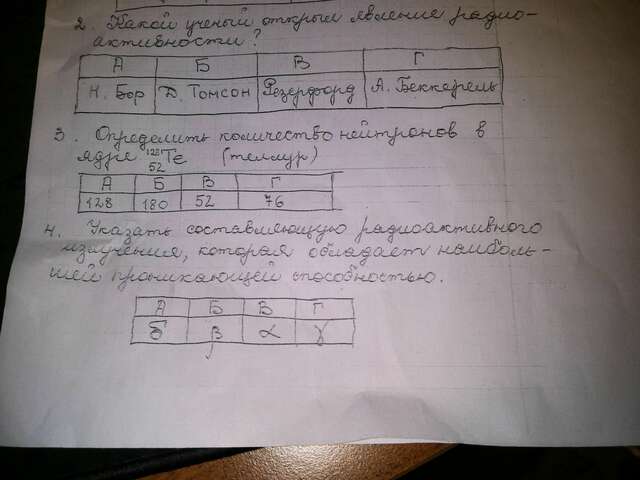 2. Какой ученый открыл явление радио-
активности?
А Б В Г
Н. Бор Д. Томсон Резерфорд А. Беккерель
3. Определить количество нейтронов в
ядре ¹²⁸₅₂Те (теллур)
А Б В Г
128 180 52 76
4. Указать составляющую радиоактивного
излучения, которая обладает наиболь-
шей проникающей способностью.
А Б В Г
б β α γ